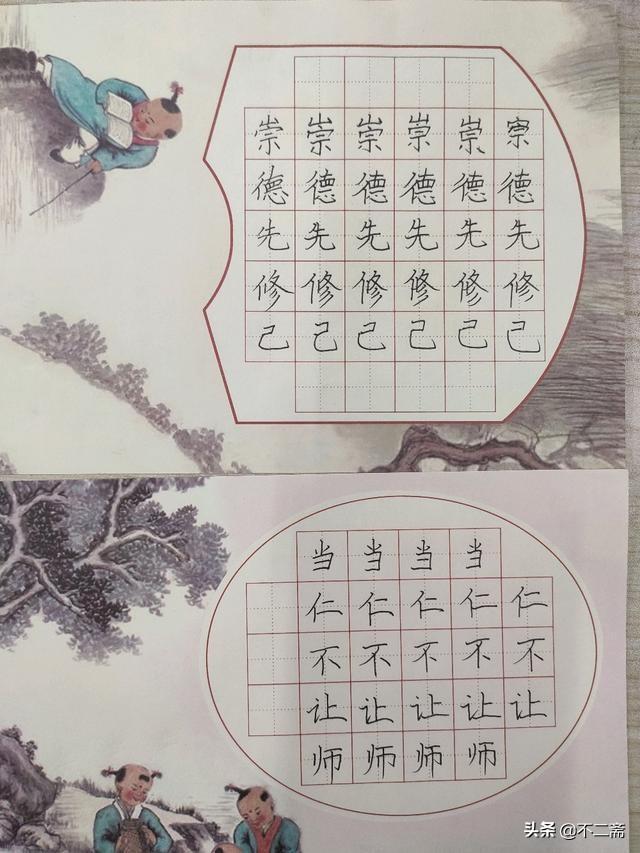 崇崇崇崇崇
德德德德德德
先先先先先先
修修修修修修
己己己己己己
当当当当
仁仁仁仁仁
不不不不不
让让让让让
师师师师
头条 @不二斋